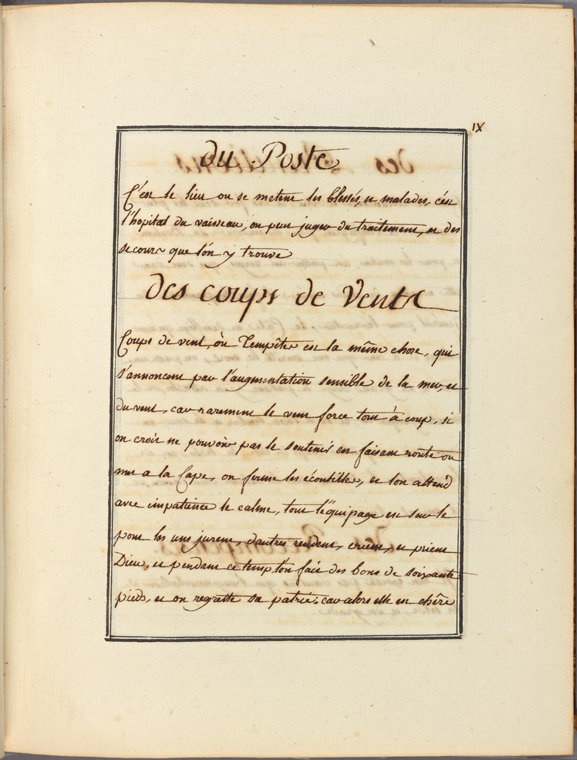 IX
du Poste
C'est le lieu ou se metent les blessés, et malades, c'est
l'hopital du vaisseau, on peut juger du traitement, et des
secours que l'on y trouve
des coups de Vents
Coups de vent, où Tempête est la même chose, qui
s'annoncent par l'augmentation sensible de la mer, et
du vent, car rarement le vent force tout à coup, si
on croit ne pouvoir pas le soutenir en faisant route on
met a la Cape, on ferme les écontilles, et l'on attend
avec impatience le calme, tout l'équipage est sur le
pont les uns jurent, d'autres rendent, crient, et prient
Dieu, et pendant ce temps l'on fait des bons de soixante
pieds, et on regrette sa patrie; car alors elle est chère